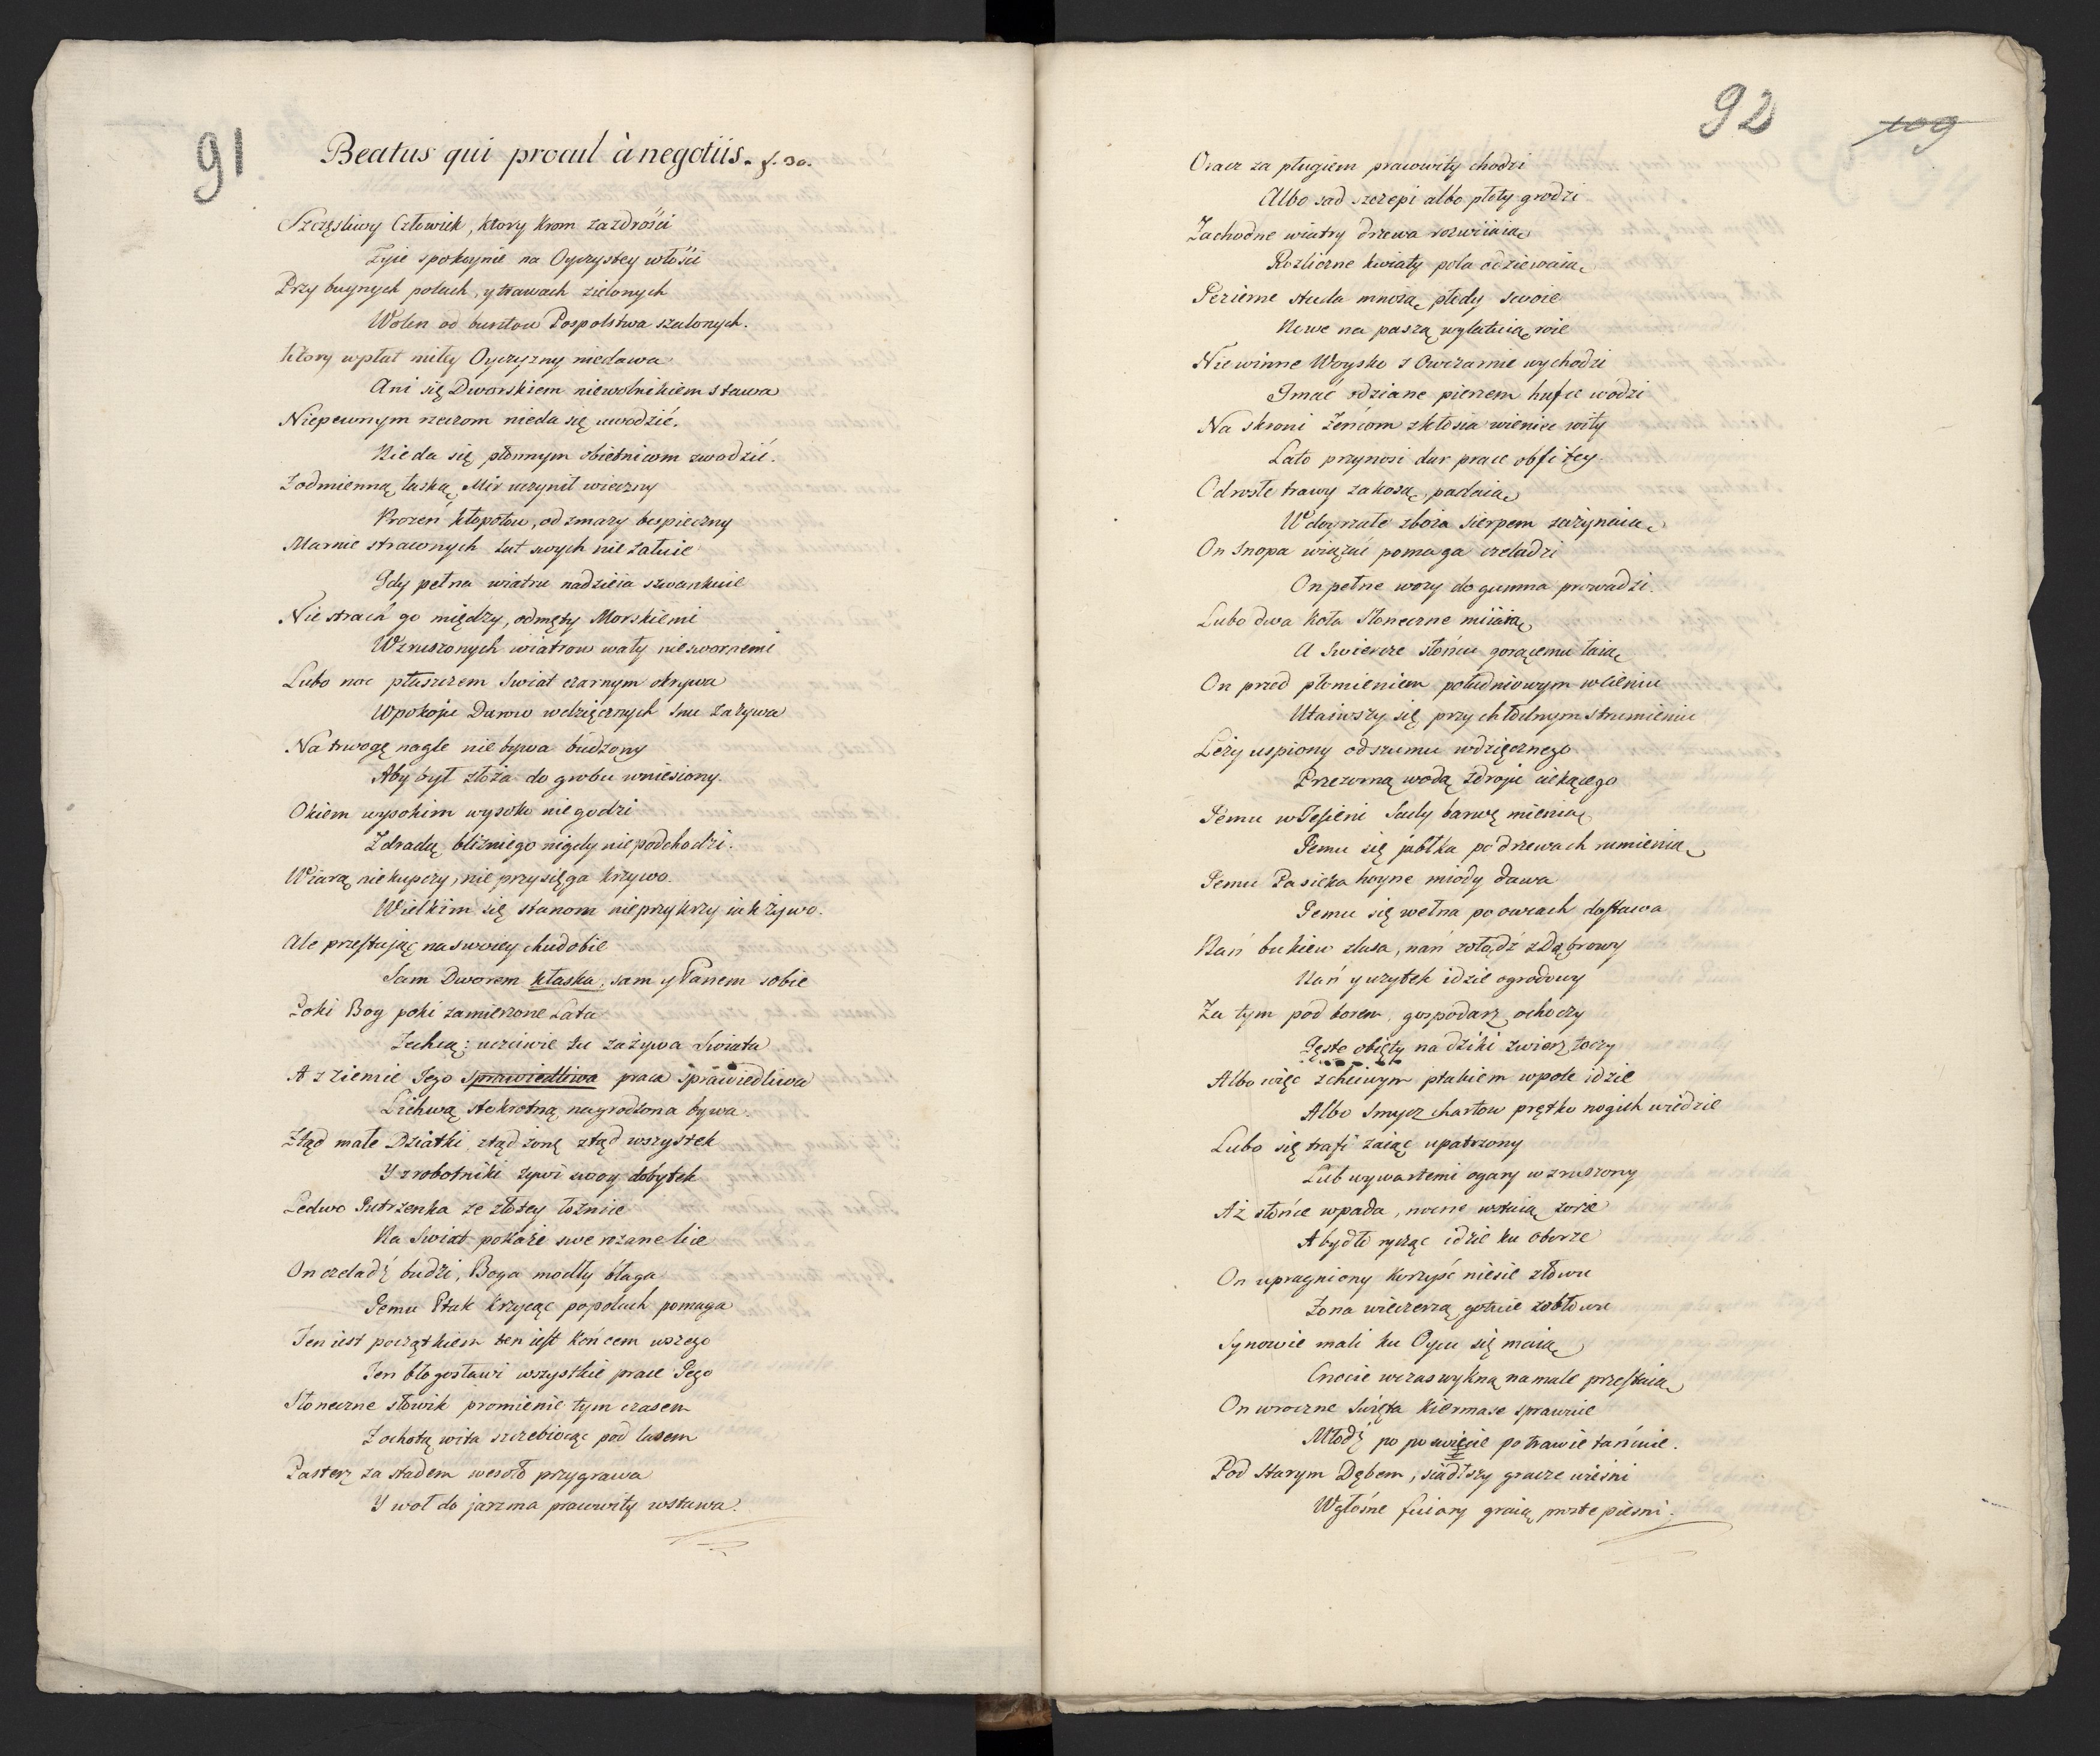 91
Beatus qui procul à negotiis. f. 30.
Szczęsliwy Człowiek, ktory krom zazdrości
Zyie spokoynie na Oyczystey włości
Przy buynych polach, y trawach zielonych
Wolen od buntow Pospolstwa szalonych.
Ktory wpłat miły Oyczyzny niedawa
Ani się Dworskiem niewolnikiem stawa
Niepewnym rzeczom nieda się uwodzić.
Nieda się płonnym obietnicom zwodzić.
Zodmienną łaską Mir uczynił wieczny
Prozen kłopotow, od zmazy bespieczny
Marnie strawonych Lat swych nie żałuie
Gdy pełna wiatru nadzieia szwankuie
Nie strach go między, odmęty Morskiemi
Wzruszonych wiatrow wały nieswornemi
Lubo noc płaszczem Swiat czarnym okrywa
Wpokoju Darow wdzięcznych Snu zażywa
Na trwogę nagle nie bywa budzony
Aby był złoża do grobu wniesiony.
Okiem wysokim wysoko niegodzi
Zdradą blizniego nigdy niepodchodzi.
Wiarą niekupczy, nie przysięga krzywo.
Wielkim się stanom nieprzykrzy iak żywo.
Ale przestając naswoiey chudobie
Sam Dworem kłaska, sam y Panem sobie
Poki Bog poki zamierzone Lata
Zechcą: uczciwie tu zażywa Swiata
A z ziemie Jego sprawiedliwa praca sprawiedliwa
Lichwą stokrotną nagrodzona bywa.
Ztąd małe Dziatki, ztąd żonę ztąd wszystek
Y z robotniki żywi swoy dobytek
Ledwo Jutrzenka ze złotey łożnice
Na Swiat pokaże swe rożane lice
On czeladź budzi, Boga modły błaga
Jemu Ptak krzycąc popolach pomaga
Ten iest początkiem ten iest końcem wszego
Ten błogosławi wszystkie prace Jego
Słoneczne słowik promienie tym czasem
Zochotą wita szczebiocąc pod lasem
Pasterz za stadem wesoło przygrawa
Y woł do jarzma pracowity wstawa.
92
109
Oracz za pługiem pracowity chodzi
Albo sad szczepi albo płoty grodzi
Zachodne wiatry drzewa rozwiiaią
Rozliczne kwiaty pola odziewaią
Jezierne stada mnożą płody swoie
Nowe na paszą wylatuią roie
Niewinne Woysko z Owczarnie wychodzi
Jmać odziane pierzem hufce wodzi
Na skroni Żencom zkłosia wieniec wity
Lato przynosi dar prace obfitey.
Odrosłe trawy zakosą padaią
Wdoyrzałe zboża sierpem zażynaią
On Snopa wiązać pomaga czeladzi
On pełne wozy do gumna prowadzi.
Lubo dwa koła Słoneczne miiaią
A Swiercze słońcu gorącemu łaią
On przed płomieniem południowym wcieniu
Utaiwszy się przy chłodnym strumieniu
Leży uspiony odszumu wdzięcznego
Przezorną wodą zdroju ciekącego
Jemu wJesieni Sady barwę mienią
Jemu się jabłka podrzewach rumienią
Jemu Pasieka hoyne miody dawa
Jemu się wełna po owcach dostawa
Nań bukiew zlasa, nań żołądź zDąbrowy
Nań y użytek idzie ogrodowy
Za tym pod borem, gospodarz ochoczy
Gęste obięty na dziki zwierz toczy
Albo więc zchciwym ptakiem wpole idzie
Albo Smycz chartow prętko nogich wiedzie
Lubo się trafi zaiąc upatrzony
Lub wywartemi ogary wzruszony
Aż słońce wpada, nocne wstaią zorze
A bydło rycząc idzie ku oborze
On upragniony korzyść niesie złowu
Żona wieczerzą gotuie zobłowu
Synowie mali ku Oycu się maią
Cnocie wczas wykną namale przestaią
On wroczne Święta kiermasz sprawuie
Młodź po po swięcie potrawie tańcuie.
Pod starym Dębem, siadłszy gracze wieśni
Wgłośne fuiary graią proste pieśni.